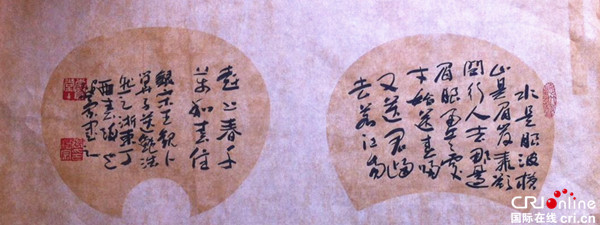 水是眼波横
山是眉峰聚欲
问行人去那边
眉眼盈盈处
才始送春归
又送君归
去若江南
赶上春千
万和春住
录宋王观卜
算子送鲍浩
然之浙东丁
酉春
CRIonline
国际在线 cri.cn